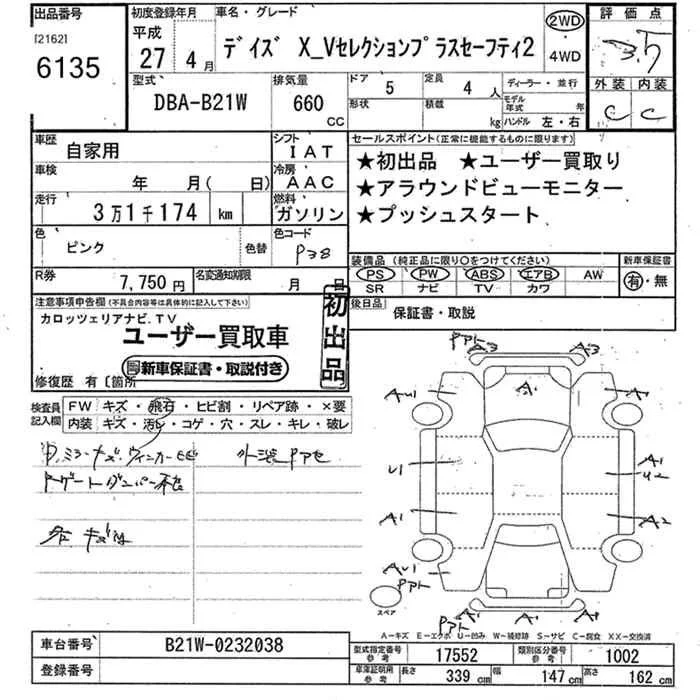 出品番号
[2162]
6135
初度登録年月
平成
27 4月
車名・グレード
デイズ X_Vセレクションプラスセーフティ2
2WD
・
4WD
評価点
3.5
外装 内装
C C
型式
DBA-B21W
排気量
660
CC
ドア
5
形状
定員
4人
積載
kg
ディーラー・並行
モデル年式 年
ハンドル 左・右
車歴
自家用
シフト
IAT
車検
年 月( 日)
冷房
AAC
走行
3万1千174 km
燃料
ガソリン
色
ピンク
色替
色コード
R券
7,750円
名変通知期限
月 日
セールスポイント(正常に機能するものに限ります)
★初出品 ★ユーザー買取り
★アラウンドビューモニター
★プッシュスタート
装備品(純正品に限り○をつけてください)
PS・PW・ABS・エアB・AW
SR ナビ TV カワ
新車保証書
有・無
後日品
保証書・取説
注意事項申告欄(不具合内容等は具体的に記入して下さい)
カロッツェリアナビ.TV
ユーザー買取車
新車保証書・取説付き
初出品
修復歴 有〔箇所
検査員記入欄
FW キズ・飛石・ヒビ割・リペア跡・×要
内装 キズ・汚レ・コゲ・穴・スレ・キレ・破レ
A3
A3
A1
AU1
A1
U1
A1
U2
A1
A2
AU1
スペア
A-キズ E-エクボ U-凹み W-補修跡 S-サビ C-腐食 XX-交換済
車台番号
B21W-0232038
登録番号
型式指定番号参考
17552
類別区分番号参考
1002
車庫証明用参考
長さ 339 cm
幅 147 cm
高さ 162 cm